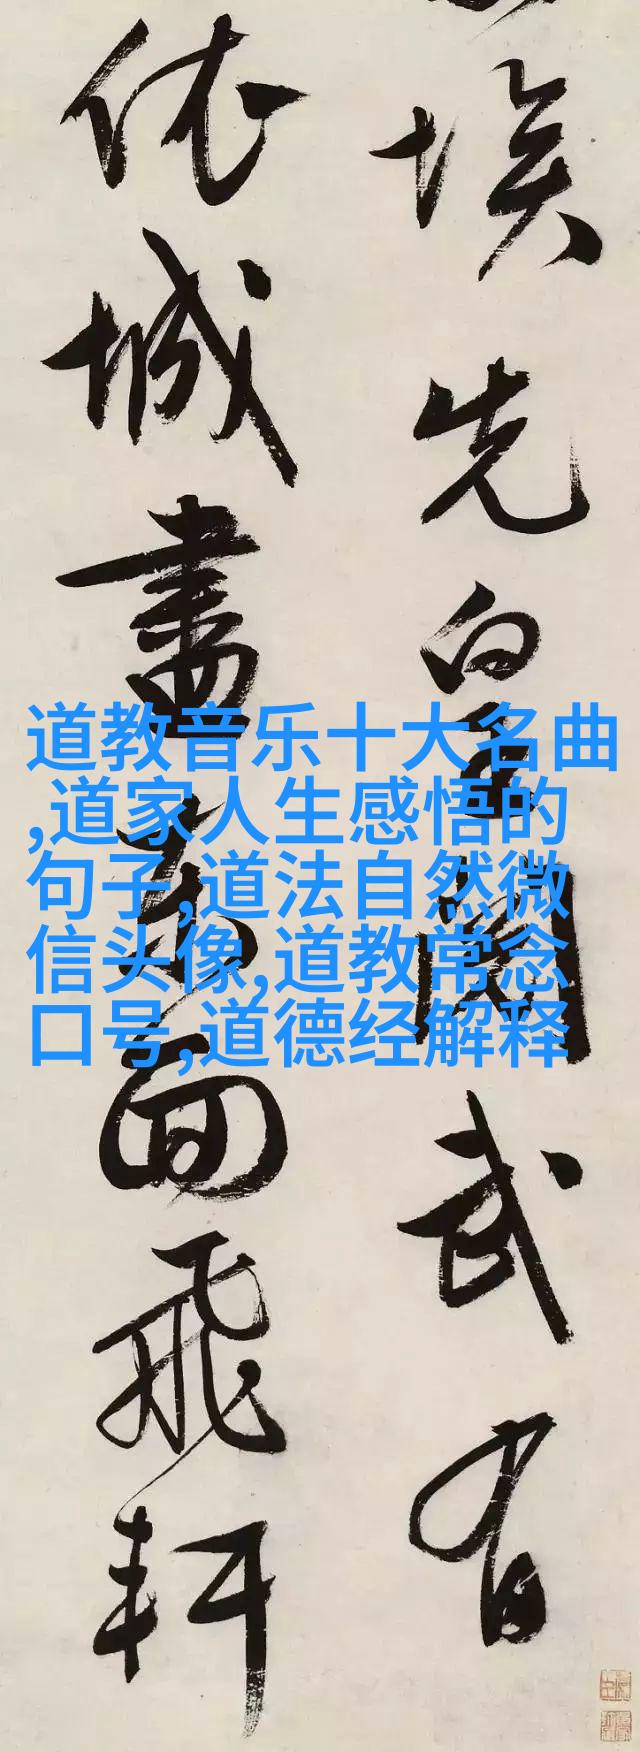 埃先皇閱武有
依城盡東面飛軒
道教音乐十大名曲
,道家人生感悟的
句子,道法自然微
信头像,道教常念
口号,道德经解释